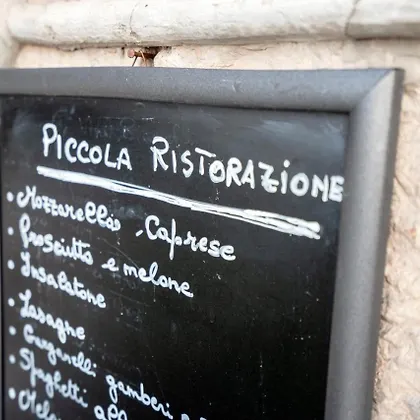 PICCOLA RISTORAZIONE
• Mozzarella, Caprese
• Prosciutto e melone
• Insalatone
• Lasagne
• Garganelli gamberi
• Spaghetti all